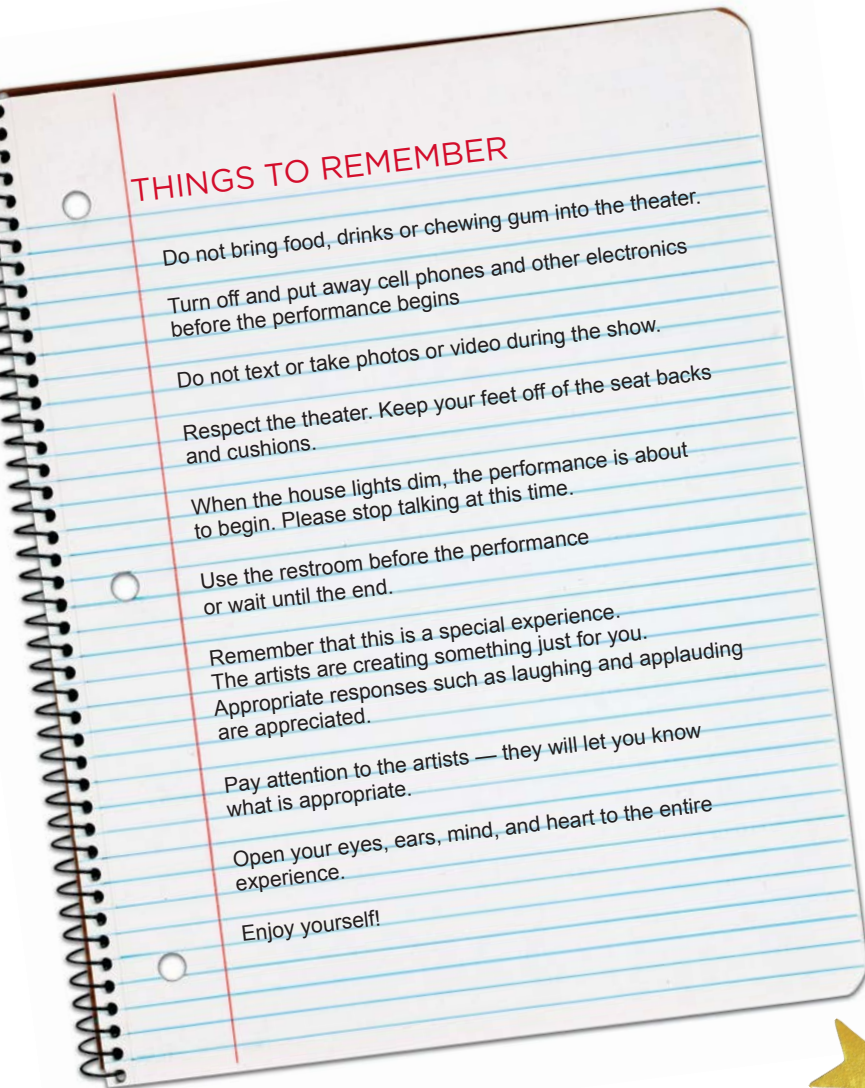 THINGS TO REMEMBER
Do not bring food, drinks or chewing gum into the theater.
Turn off and put away cell phones and other electronics
before the performance begins
Do not text or take photos or video during the show.
Respect the theater. Keep your feet off of the seat backs
and cushions.
When the house lights dim, the performance is about
to begin. Please stop talking at this time.
Use the restroom before the performance
or wait until the end.
Remember that this is a special experience.
The artists are creating something just for you.
Appropriate responses such as laughing and applauding
are appreciated.
Pay attention to the artists — they will let you know
what is appropriate.
Open your eyes, ears, mind, and heart to the entire
experience.
Enjoy yourself!